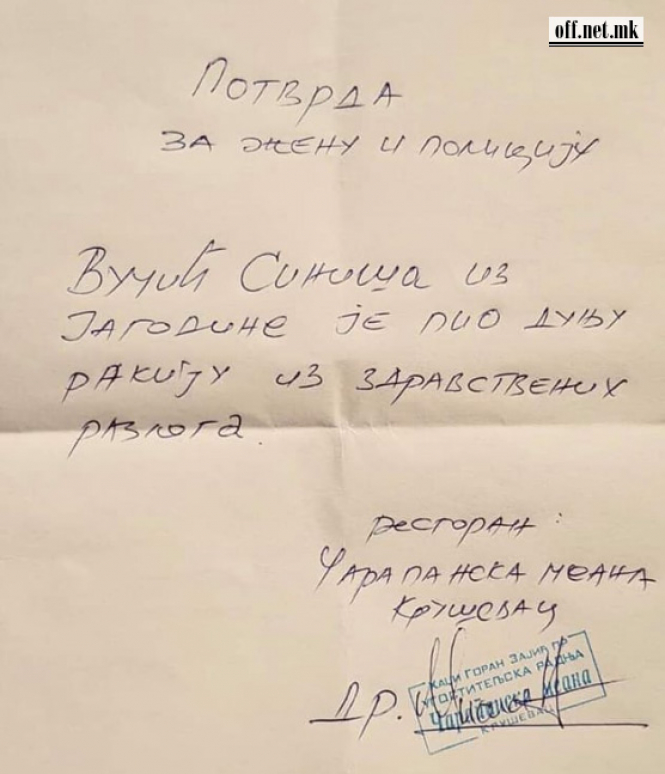 off.net.mk
Потврда
за жену и полицију
Вучић Синиша из
Јагодине је пио дуњу
ракију из здравствених
разлога.
ресторан:
Чарапанска меана
Крушевац
Др.
КАЦИ ГОРАН ЗАЈИЋ ПР
УГОСТИТЕЉСКА РАДЊА
Чарапанска меана
КРУШЕВАЦ